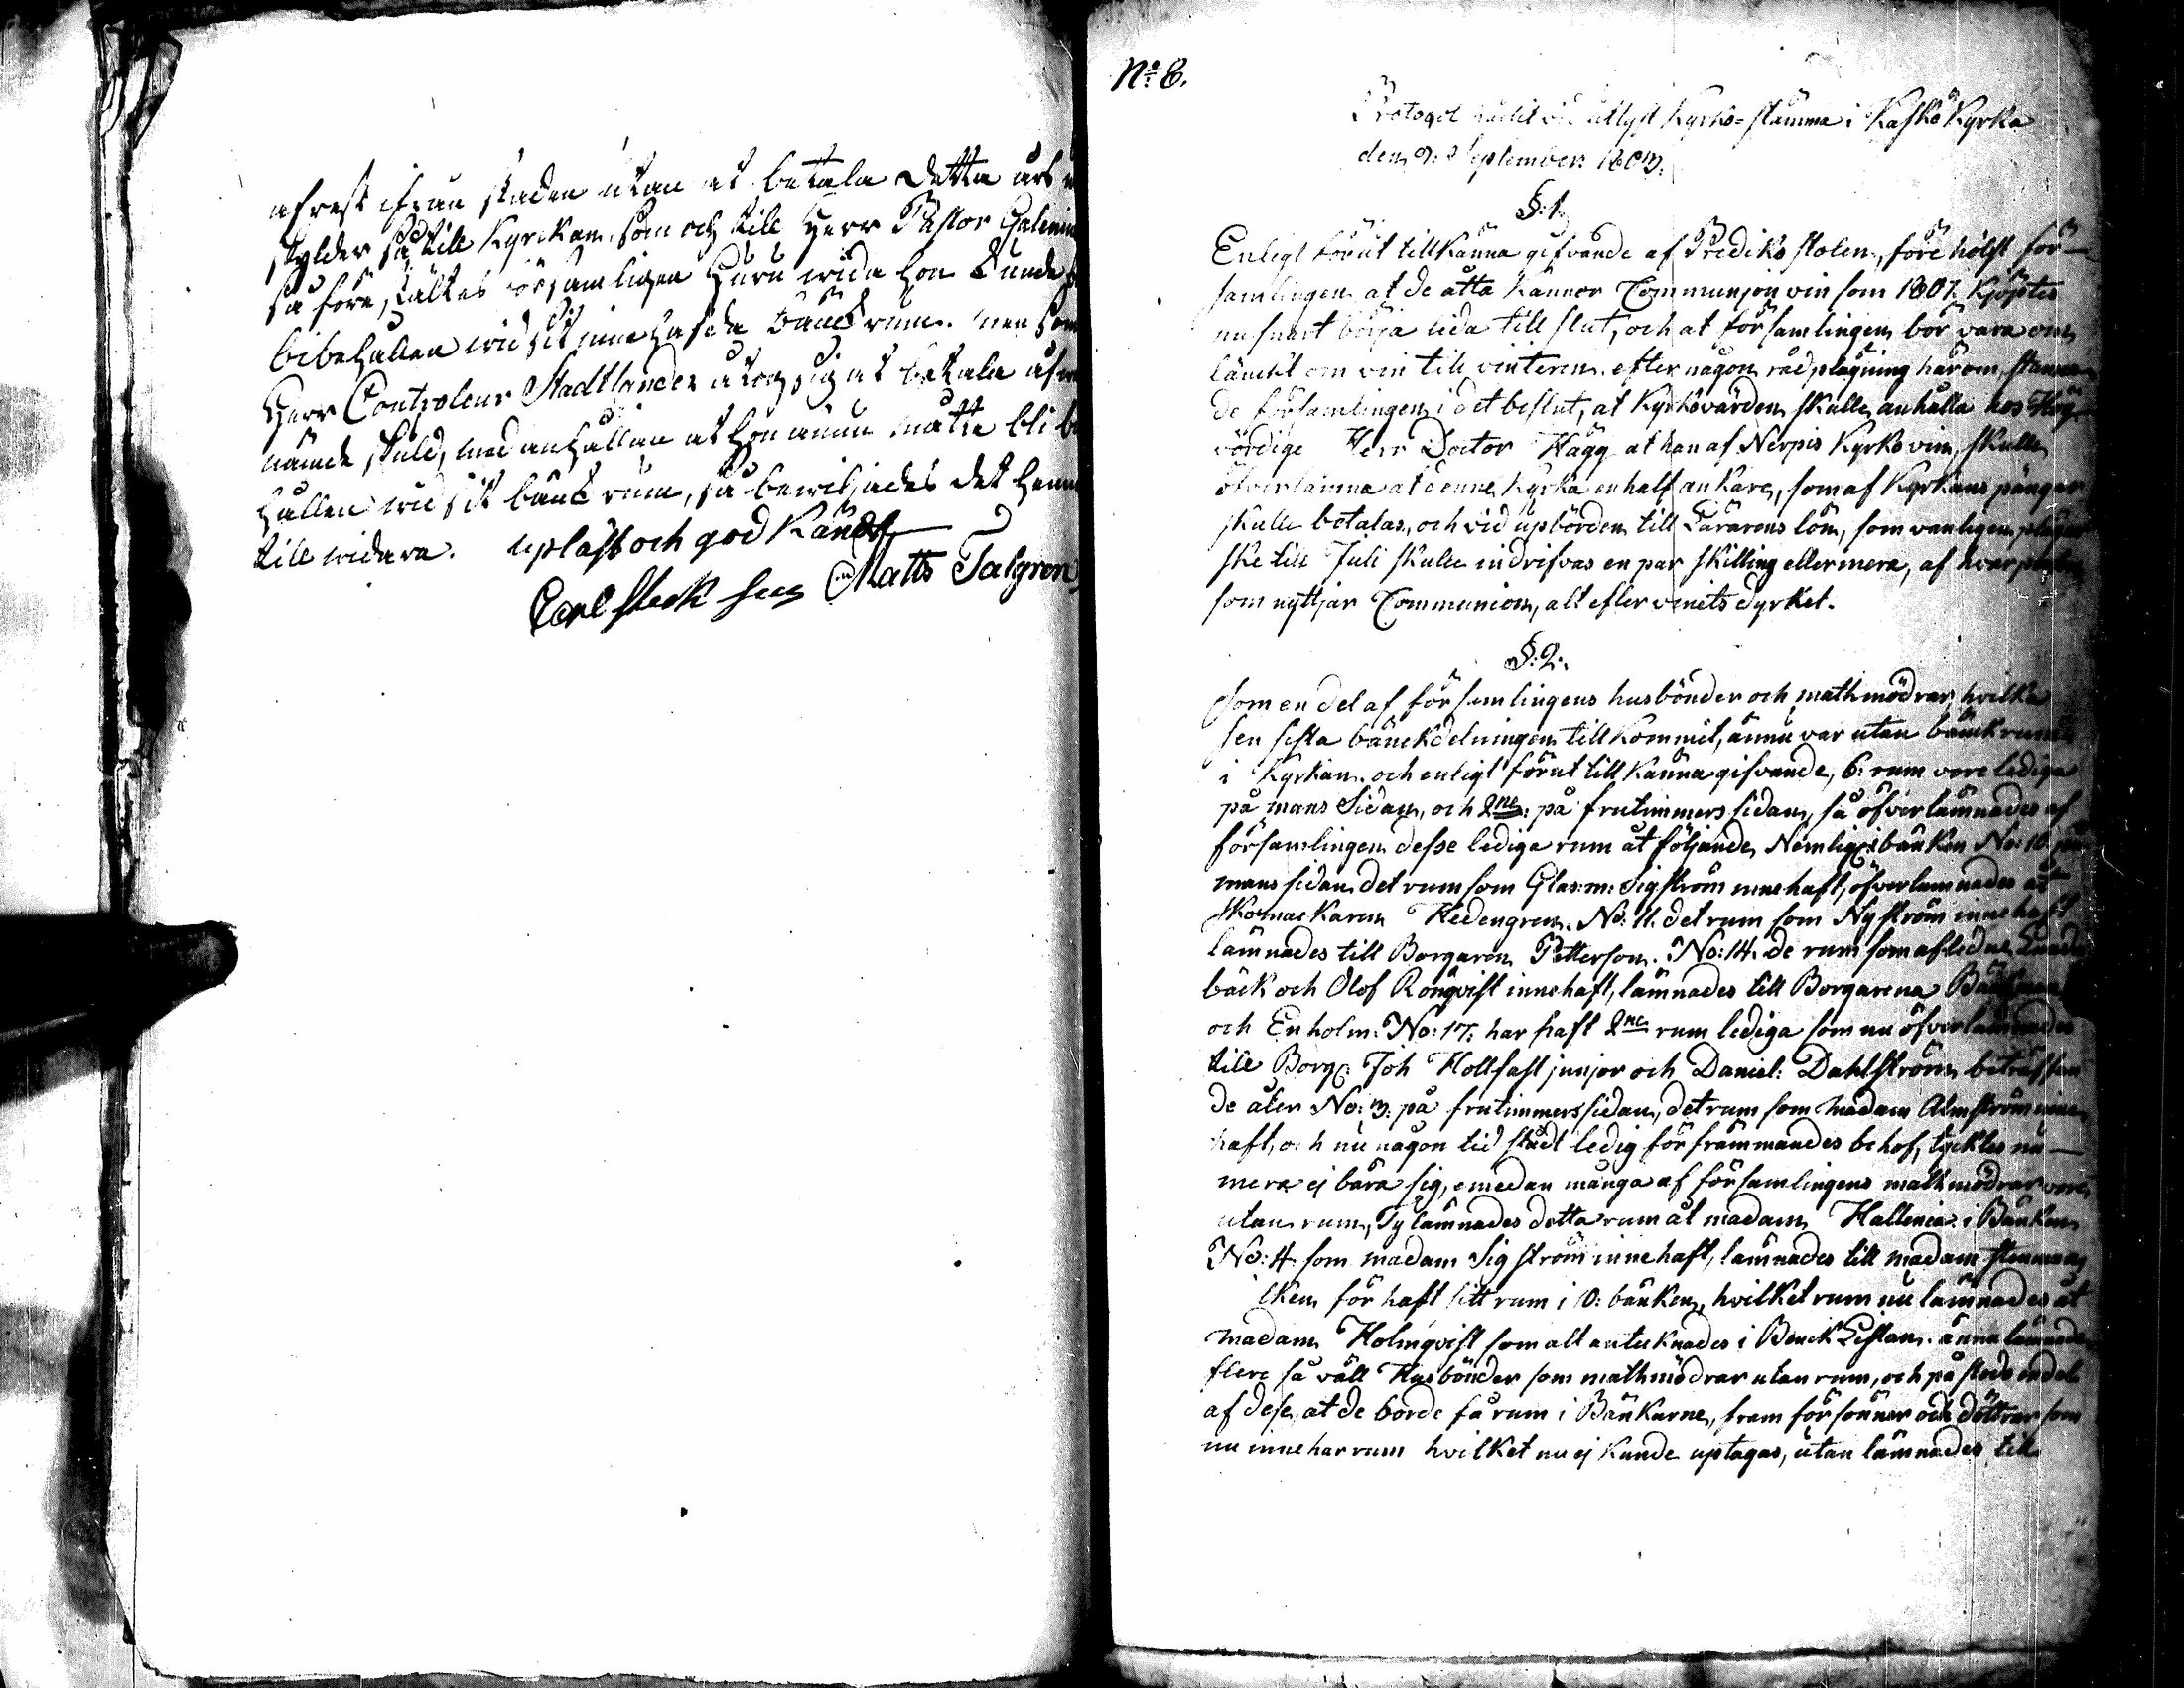 afrest ifrån staden utan at betala detta års
skylder så till Kyrckan, som och till Herr Pastor Galenius
så före stältes församlingen Huru wida hon kunde
bibehållen wid sit innehafda bänckrum. men som
Herr Controleur Stadtlander utog sig at betala ofwan
nämde skuld, med anhållan at hon ännu måtte bli be
hållen wid sit bänck rum, så bewiljades det henne
till widare. uplåst och god känd
Carl Matts Talgren
No: 8.
Protocol hållit vid utlyst Kyrko-stämma i Kaskö Kyrka
den 9: September 1803.
§:1.
Enligt förut tillkänna gifvande af Prediko stolen, före hölst för-
samlingen at de åtta kannor Communjon vin som 1801 kjöptes
nu snart börja lida till slut, och at församlingen bör vara om
tänckt om vin till vinteren. efter någon rådplägning härom, stanna
de församlingen i det beslut, at Kyrkovärden skulle anhålla hos Hög
vördige Herr Doctor Hägg at han af Nerpis Kyrko vin, skulle
öfverlämna at denne Kyrka en half ankare, som af Kyrkans pängar
skulle betalas, och vid upbörden till Lärarens lön, som vanligen plägar
ske till Juli skulle indrifvas en par skilling eller mera, af hvar
som nyttjar Communion, alt efter vinets dyrket.
§:2:.
Som en del af församlingens husbönder och mathmödrar, hvilka
sen sista bänckdelningen tillkommit, ännu var utan bänckrum
i Kyrkan. och enligt förut till känna gifvande, 6: rum vore lediga
på mans Sidan, och 2ne: på fruntimmers sidan, så öfverlämnades af
församlingen desse lediga rum åt följande, Nemlig: i bänken No: 10 på
mans sidan det rum som Glas:m: Sigström innehaft, öfverlamnades åt
skomackaren Hedengren. No: 11. det rum som Nyström innehaft
lämnades till Borgaren Petterson. No: 14. de rum som afledne Lund
bäck och Olof Rönqvist innehaft, lämnades till Borgarena Bäckman
och Enholm. No: 17. har haft 2ne rum lediga som nu öfverlämnades
till Borg: Joh Hollfast junjor och Daniel: Dahlström beträffan
de åter No: 3. på frutimmerssidan, det rum som madam Almström inne
haft, och nu någon tid stådt ledig för främmandes behof, tycktes nu-
mera ej bära sig, emedan många af församlingens mathmödrar vore
utan rum, Ty lämnades detta rum åt madam Hallenia. i Bänken
No: 4. som madam Sigström innehaft, lämnades till madam Stenman
ilken för haft sitt rum i 10: bänken, hvilket rum nu lämnades åt
madam Holmqvist som alt antecknades i Benck Listan. ännu lämnades
flere så väll Husbönder som mathmödrar utan rum, och påstode en del
af dese, at de borde få rum i Bänkarne, fram för söner och döttrar som
nu innehar rum hvilket nu ej kunde uptagas, utan lämnades till